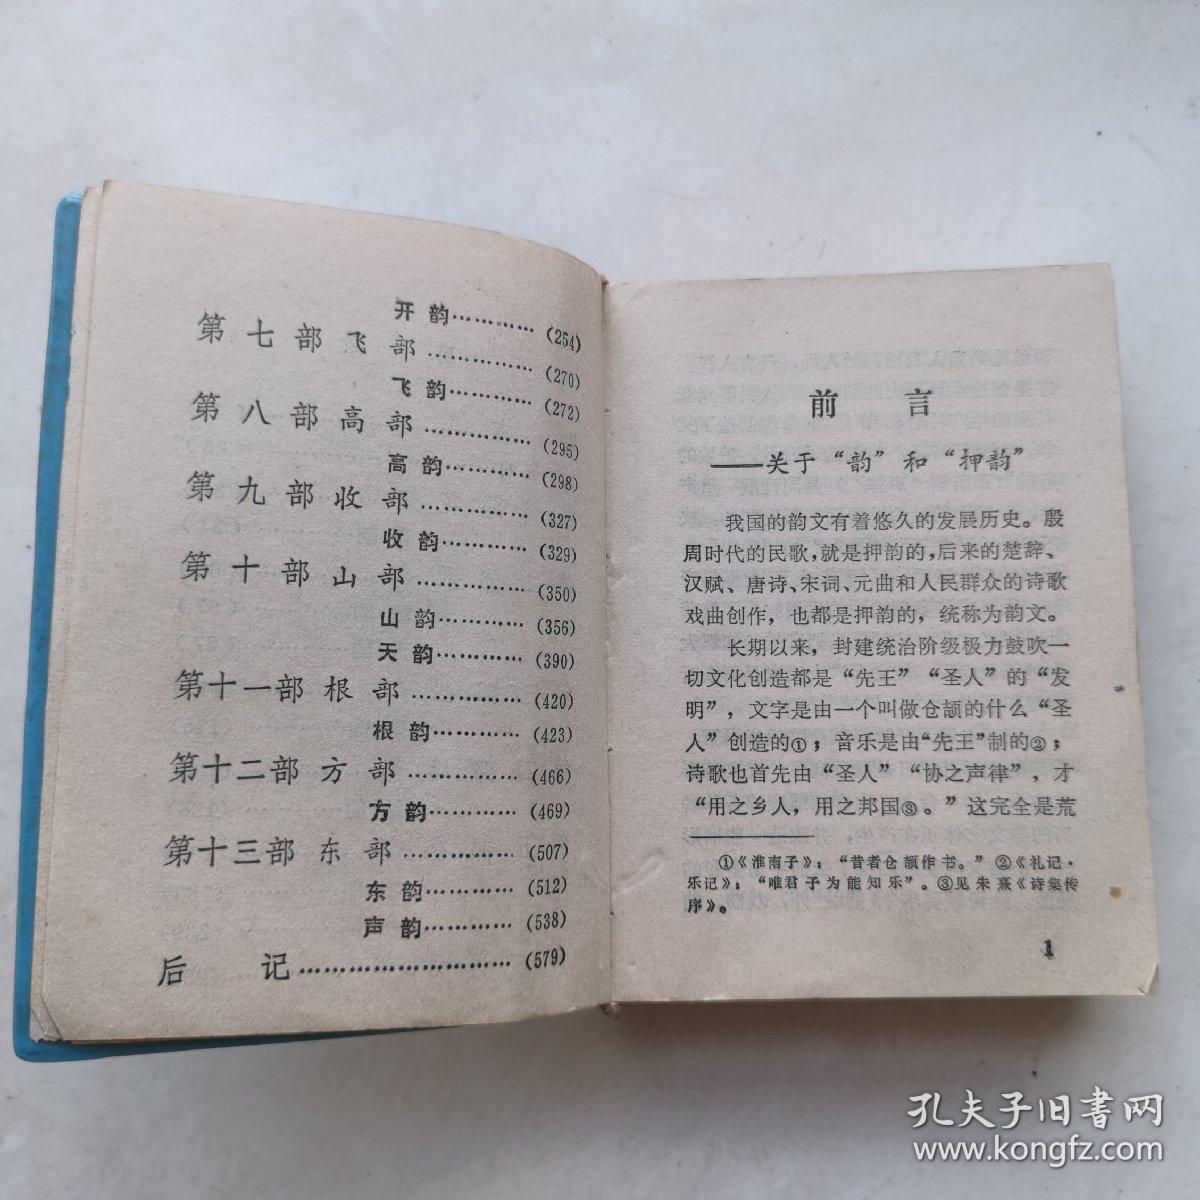 开韵…………(254)
第七部飞部…………(270)
飞韵…………(272)
第八部高部…………(295)
高韵…………(298)
第九部收部…………(327)
收韵…………(329)
第十部山部…………(350)
山韵…………(356)
天韵…………(390)
第十一部根部…………(420)
根韵…………(423)
第十二部方部…………(466)
方韵…………(469)
第十三部东部…………(507)
东韵…………(512)
声韵…………(538)
后记…………………………(579)
前言
——关于“韵”和“押韵”
我国的韵文有着悠久的发展历史。殷
周时代的民歌,就是押韵的,后来的楚辞、
汉赋、唐诗、宋词、元曲和人民群众的诗歌
戏曲创作，也都是押韵的，统称为韵文。
长期以来，封建统治阶级极力鼓吹一
切文化创造都是“先王”“圣人”的“发
明”，文字是由一个叫做仓颉的什么“圣
人”创造的①；音乐是由“先王”制的②；
诗歌也首先由“圣人”“协之声律”，才
“用之乡人，用之邦国③。”这完全是荒
①《淮南子》：“昔者仓颉作书。”②《礼记·
乐记》：“唯君子为能知乐”。③见朱熹《诗集传
序》。
1
孔夫子旧书网
www.kongfz.com